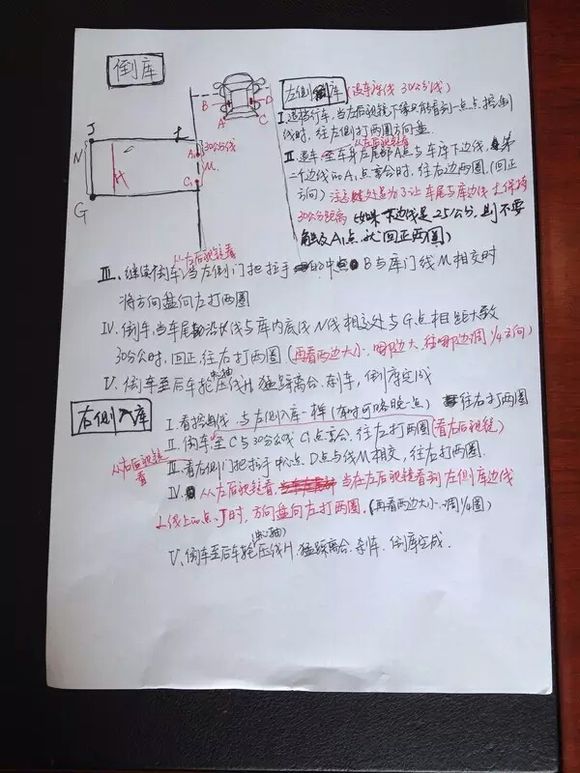 倒库
B
D
A
C
J
N
G
H
L
A₁
30公分线
M
C₁
左侧倒库(退车库线 30公分线)
I.退车行车,当左后视镜下缘只能看到一点点控制
线时,往左侧打两圈方向盘
从左后视镜看
II.退车至车身左尾部A点与车库下边线,第
二个边线的A₁点重合时,往右边两圈,(回正
方向)注:此处是为了让车尾与库边线L保持
30公分距离(如果下边线是25公分,则不要
触及A₁点,就回正两圈)
从左后视镜看
III.继续倒车,当左侧门把拉手的中点B与库门线M相交时
将方向盘向左打两圈
IV.倒车,当车尾沿线与库内底线N线相交处与G点相距大致
30公分时,回正,往右打两圈(再看两边大小,哪边大,往哪边调1/4方向)
V.倒车至后车轮(中轴)压线H,猛踩离合、刹车,倒库完成
右侧入库
I.看控制线,与左侧入库一样(有时可略晚一点)往右打两圈
II.倒车至C与30公分线C₁点重合,往左打两圈(看右后视镜)
从右后视镜看
III.看右侧门把拉手中心点D点与线M相交,往右打两圈
IV.从左后视镜看,当在左后视镜看到左侧库边线
L线上的点J时,方向盘向左打两圈.(再看两边大小,调1/4圈)
V.倒车至后车轮(中轴)压线H,猛踩离合、刹车、倒库完成.